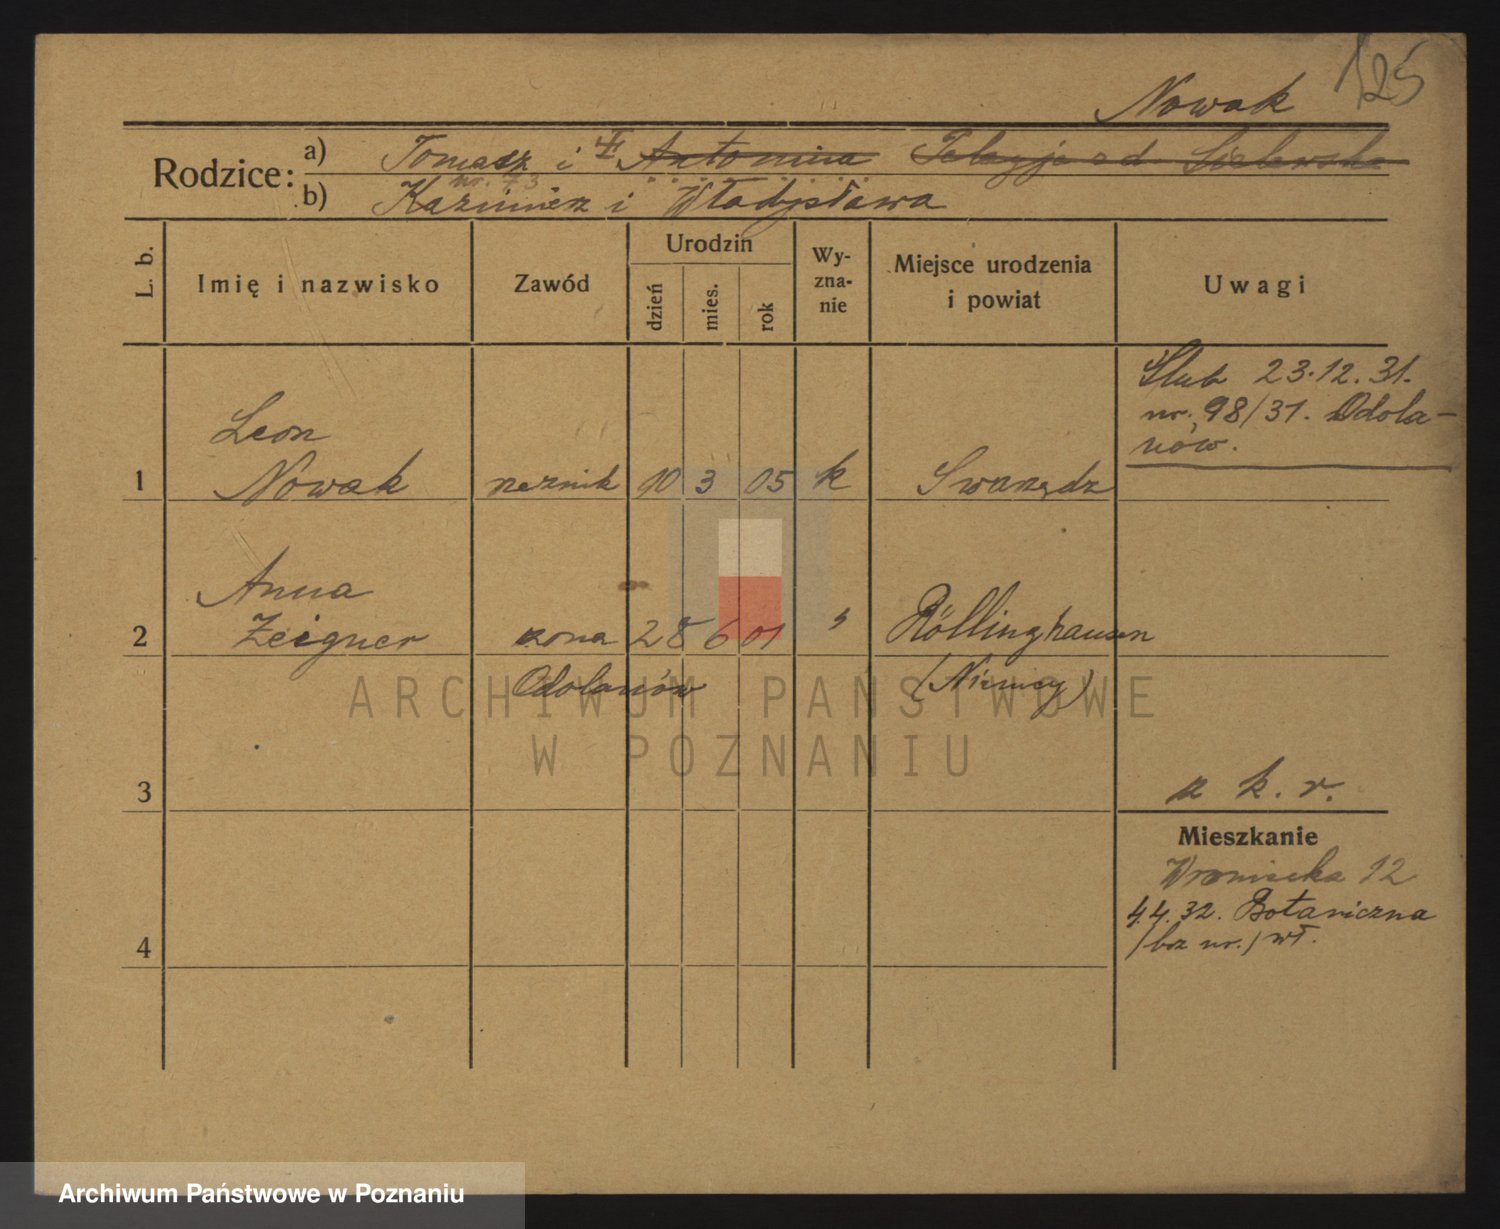 125
Nowak
Rodzice:
a) Tomasz i Antonina
b) Kazimierz i Władysława
L. b.
Imię i nazwisko
Zawód
Urodzin
dzień
mies.
rok
Wy-
zna-
nie
Miejsce urodzenia
i powiat
Uwagi
Ślub 23.12.31.
nr. 98/31. Odola-
nów.
Leon
1 Nowak rzeźnik 10 3 05 k Swarzędz
Anna
2 Zeigner żona 28 6 01 " Röllinghausen
Odolanów (Niemcy)
ARCHIWUM PAŃSTWOWE
W POZNANIU
3
z k. r.
Mieszkanie
Wroniecka 12
4.4.32. Botaniczna
/bez nr./ wł.
4
Archiwum Państwowe w Poznaniu